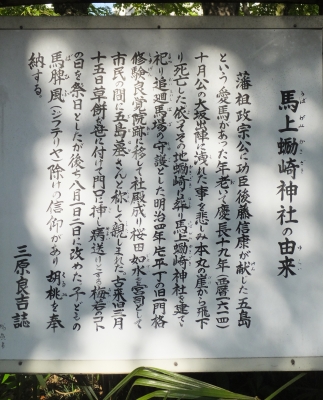 馬上蠣崎神社の由来
藩祖政宗公に功臣後藤信康が献じた五島
という愛馬があった年老いて慶長十九年(一六一四)
十月公の大坂出陣に洩れた事を悲しみ本丸の崖から飛下
り死亡した依てその地蠣崎に葬り馬上蠣崎神社を建て
祀り追廻馬場の守護とした明治四年片平丁の旧門格
修験良覚院跡に移して社殿成り桜田如水を宮司として
市民の間に五島墓さんと称して親しまれた古来旧三月
十五日草餅を
の日を祭日としたが後ち八月一日二日に改めた子どもの
馬脾風(ジフテリヤ)除けの信仰があり胡桃を奉
納する。
三原良吉誌
うばがみ
かき
くるみ